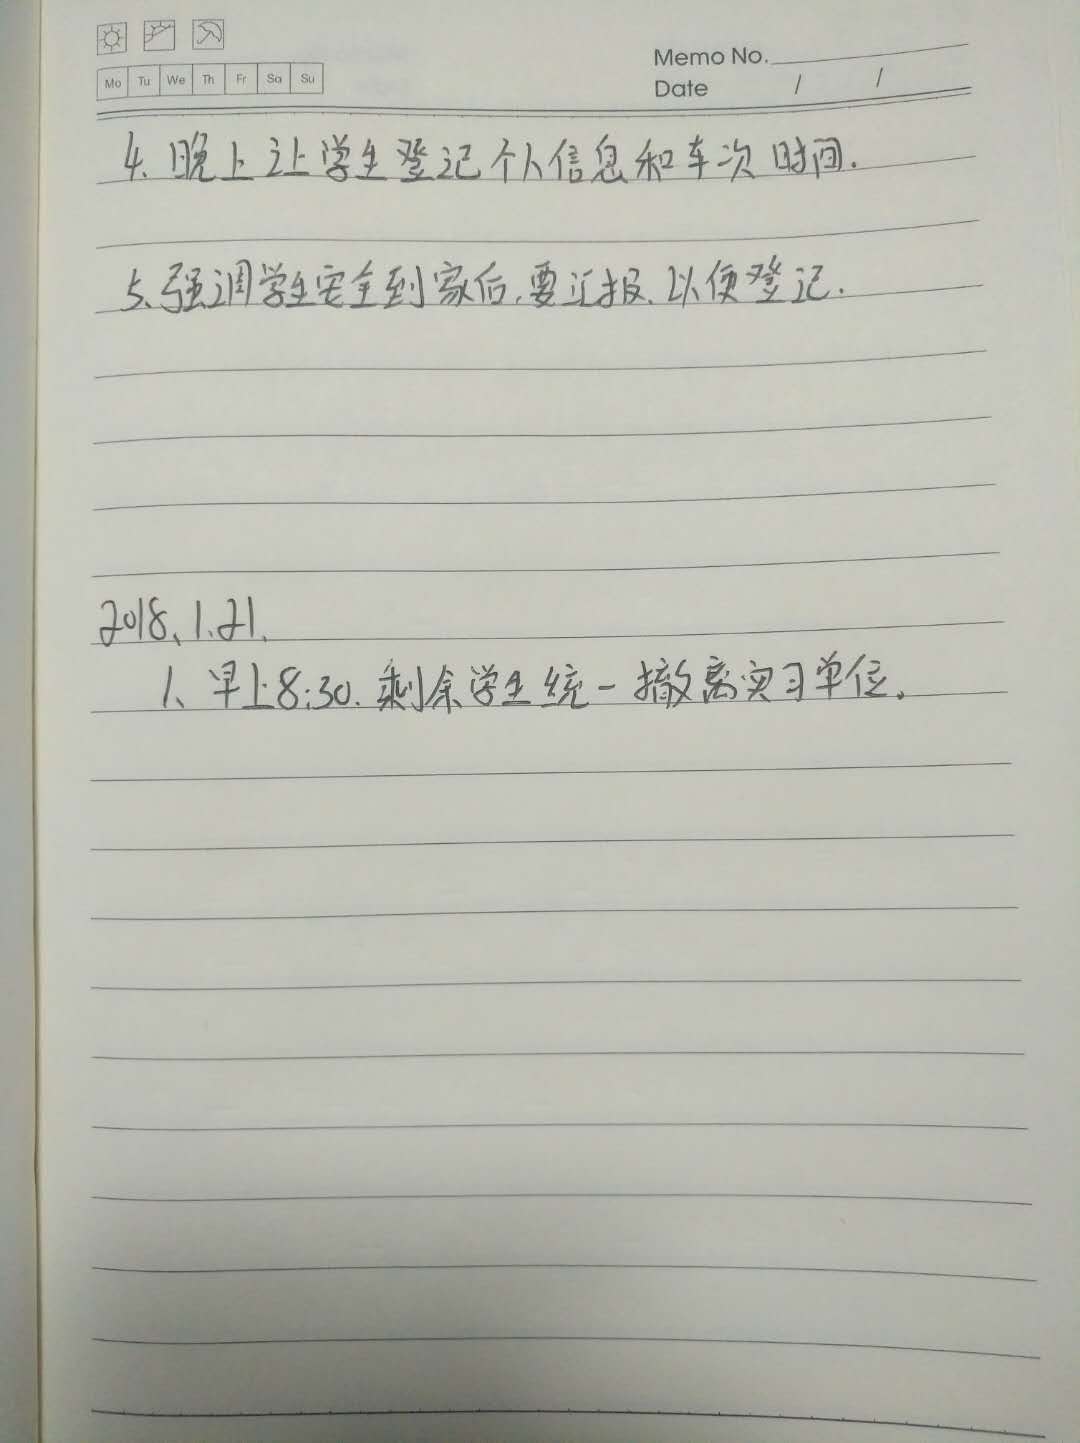 Memo No.
Mo Tu We Th Fr Sa Su
Date / /
4、晚上让学生登记个人信息和车次时间.
5、强调学生安全到家后,要汇报、以便登记.
2018、1.21、
1、早上8:30.剩余学生统一撤离实习单位。